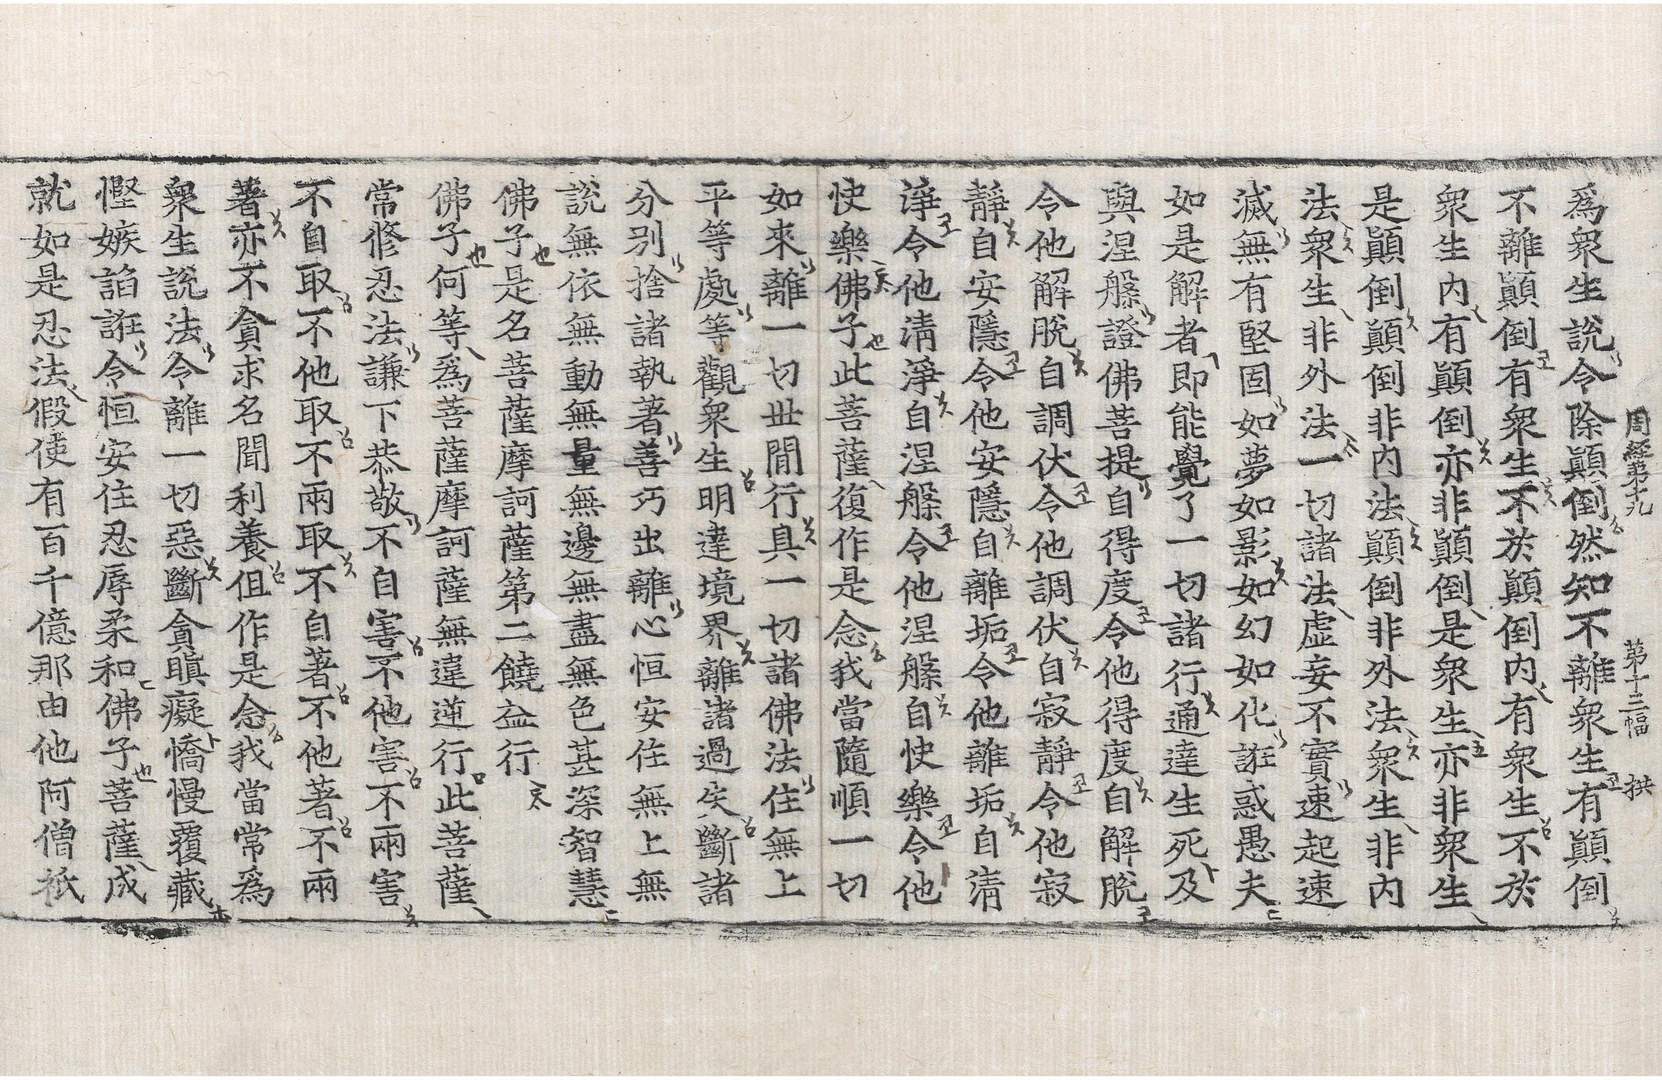 周經第十九　第十三幅　拱
爲衆生說令除顚倒然知不離衆生有顚倒
不離顚倒有衆生不於顚倒內有衆生不於
衆生內有顚倒亦非顚倒是衆生亦非衆生
是顚倒顚倒非內法顚倒非外法衆生非內
法衆生非外法一切諸法虛妄不實速起速
滅無有堅固如夢如影如幻如化誑惑愚夫
如是解者即能覺了一切諸行通達生死及
與涅槃證佛菩提自得度令他得度自解脫
令他解脫自調伏令他調伏自寂靜令他寂
靜自安隱令他安隱自離垢令他離垢自清
淨令他清淨自涅槃令他涅槃自快樂令他
快樂佛子此菩薩復作是念我當隨順一切
如來離一切世間行具一切諸佛法住無上
平等處等觀衆生明達境界離諸過失斷諸
分別捨諸執著善巧出離心恒安住無上無
說無依無動無量無邊無盡無色甚深智慧
佛子是名菩薩摩訶薩第二饒益行
佛子何等爲菩薩摩訶薩無違逆行此菩薩
常修忍法謙下恭敬不自害不他害不兩害
不自取不他取不兩取不自著不他著不兩
著亦不貪求名聞利養但作是念我當常爲
衆生說法令離一切惡斷貪瞋癡憍慢覆藏
慳嫉諂誑令恒安住忍辱柔和佛子菩薩成
就如是忍法假使有百千億那由他阿僧祇